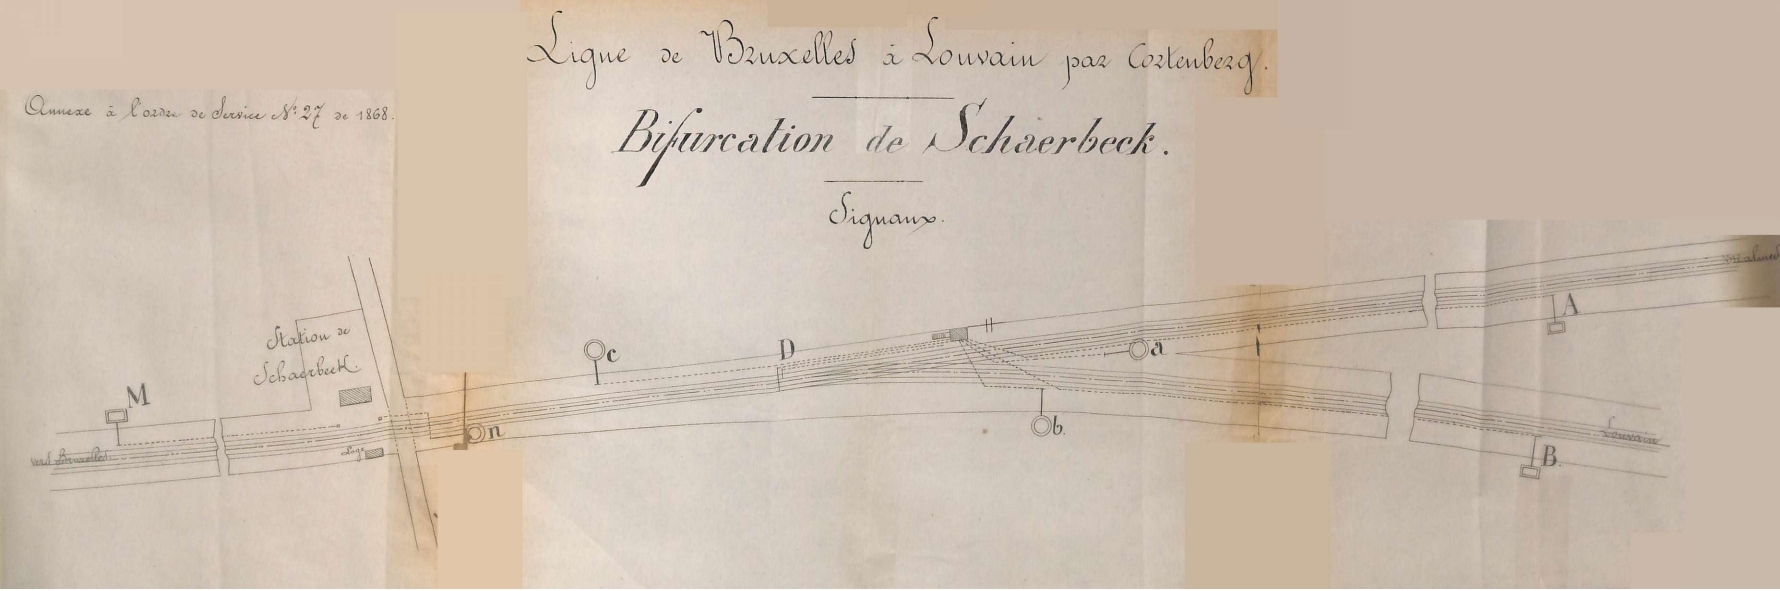 Ligne de Bruxelles à Louvain par Cortenberg.
Annexe à l'ordre de Service N° 27 de 1868.
Bifurcation de Schaerbeck.
Signaux.
Malines
A
Station de
Schaerbeek.
c
D
H
a
M
n
b.
Louvain
vers Bruxelles.
Loge
B.